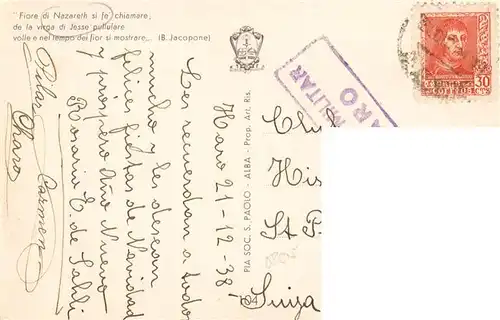 "Fiore di Nazareth si fe chiamare,
de la virga di Jesse pullulare
volle e nel tempo dei fior si mostrare„. (B. Jacopone)
Haro 21-12-38-
Les recuerdan a todos
mucho y les desean
felices fiestas de Navidad
y próspero Año Nuevo
Rosario E. de
Pilar Carmen
Charo
PIA SOC. S. PAOLO - ALBA - Prop. Art. Ris.
MILITAR
ARO
CORREOS
30
CTS
His
St P
Suiza